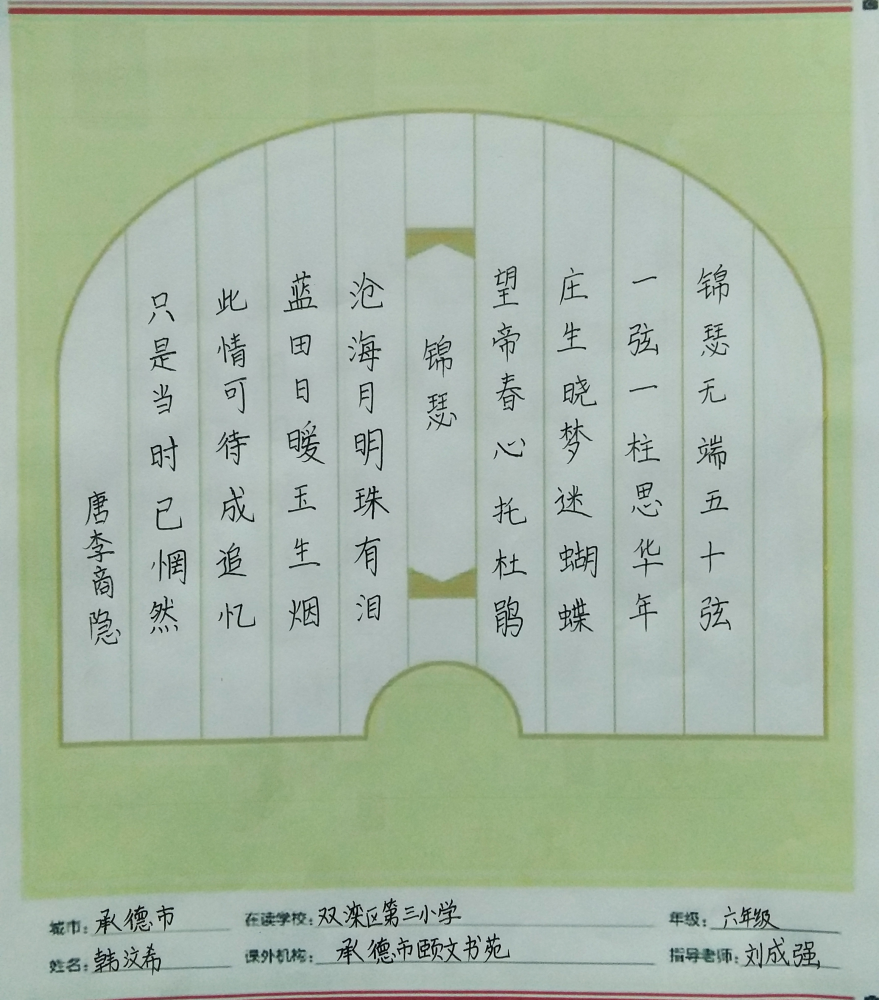 锦瑟无端五十弦
一弦一柱思华年
庄生晓梦迷蝴蝶
望帝春心托杜鹃
锦瑟
沧海月明珠有泪
蓝田日暖玉生烟
此情可待成追忆
只是当时已惘然
唐李商隐
城市：承德市 在读学校：双滦区第三小学 年级：六年级
姓名：韩汶希 课外机构：承德市颐文书苑 指导老师：刘成强